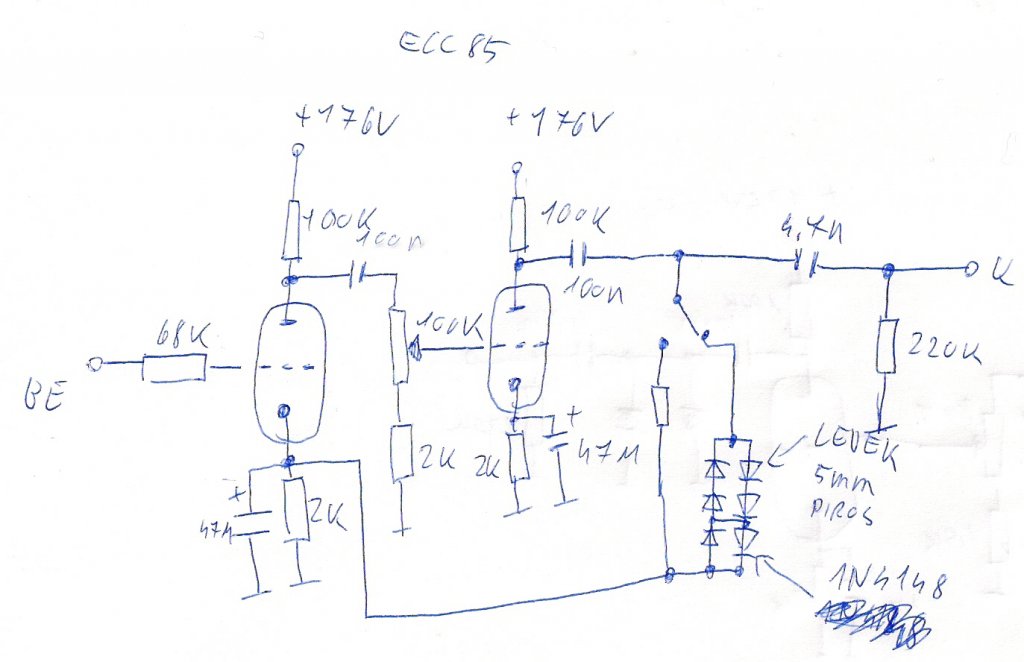 ECC85
+176V
+176V
100K
100n
100K
100n
4,7n
K
68K
BE
100K
220K
2K
2K
47M
47M
2K
LEDEK
5mm
PIROS
1N4148